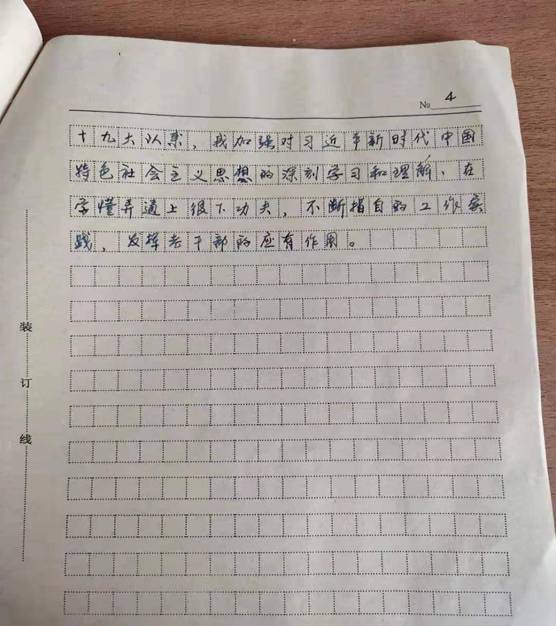 № 4
十九大以来，我加强对习近平新时代中国
特色社会主义思想的深刻学习和理解、在
学懂弄通上很下功夫，不断指自的工作实
践，发挥老干部的应有作用。
装
订
线